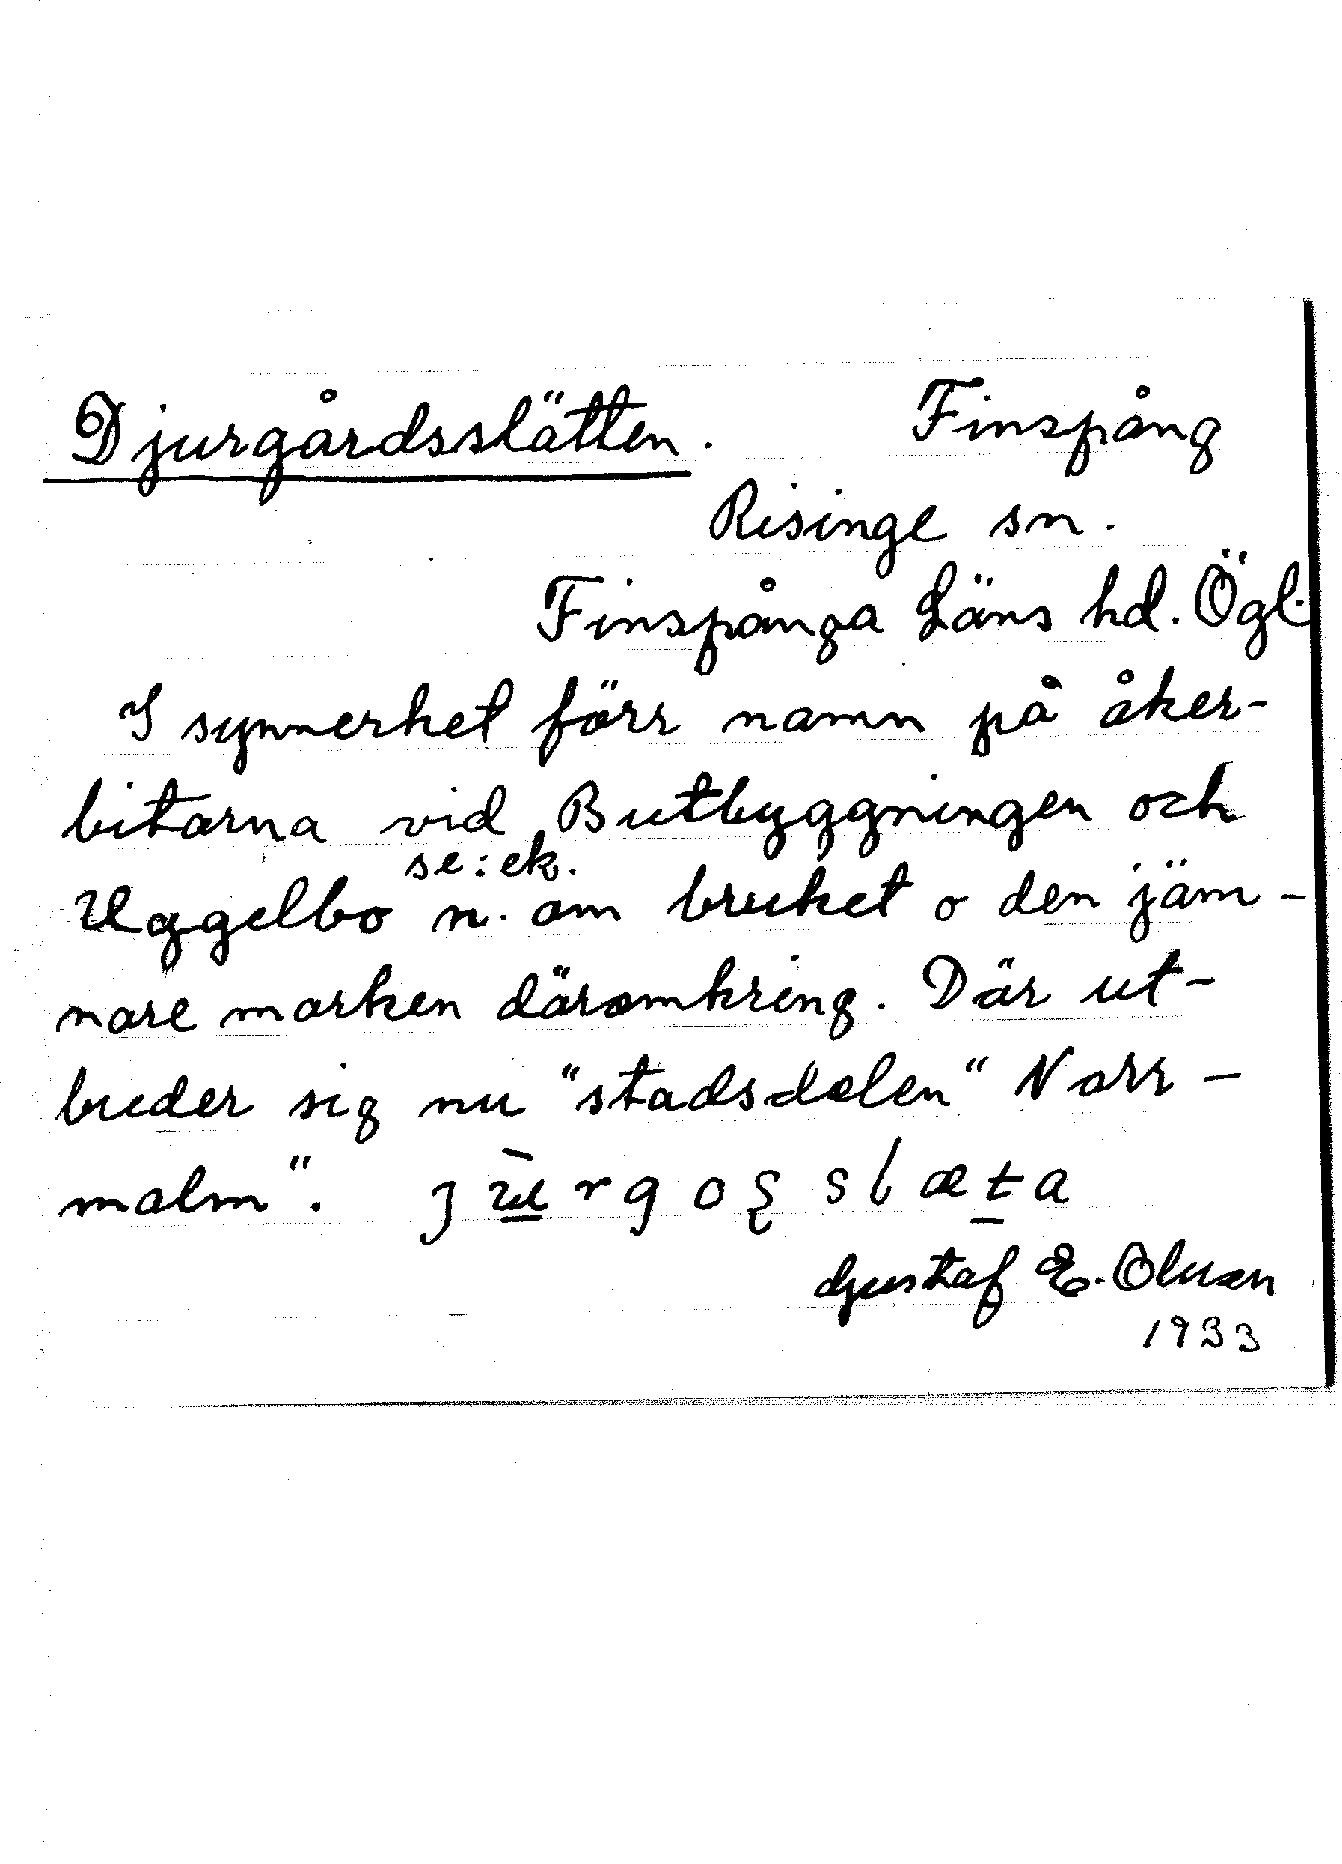 Djurgårdsslätten. Finspång
Risinge sn.
Finspånga Läns hd. Ögl.
I synnerket förr namn på åker-
bitarna vid Butbyggningen och
se: ek.
Uggelbo n. om bruket o den jäm-
nare marken däromkring. Där ut-
breder sig nu "stadsdelen" Norr-
malm".
Gustaf E. Olsson
1933